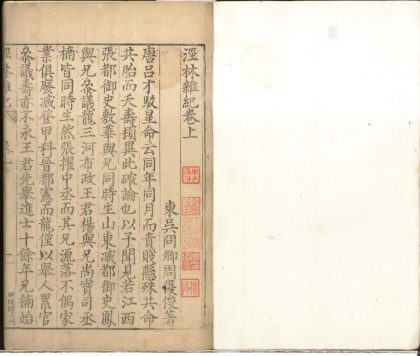 涇林雜紀卷上
東吳冏卿周復俊著
唐呂才駁星命云同年同月而貴賤懸殊共命
共胎而夭壽頓異此確論也以予聞見若江西
張都御史數華與兄同時生山東臧都御史鳳
與兄叅議龍三河布政王君楊與兄尚寶司丞
楠皆同時生然張擢中丞而其兄流落不偶家
業俱廢臧登甲科晉都憲而龍僅以舉人累官
叅議壽亦不永王君先舉進士十餘年兄楠始